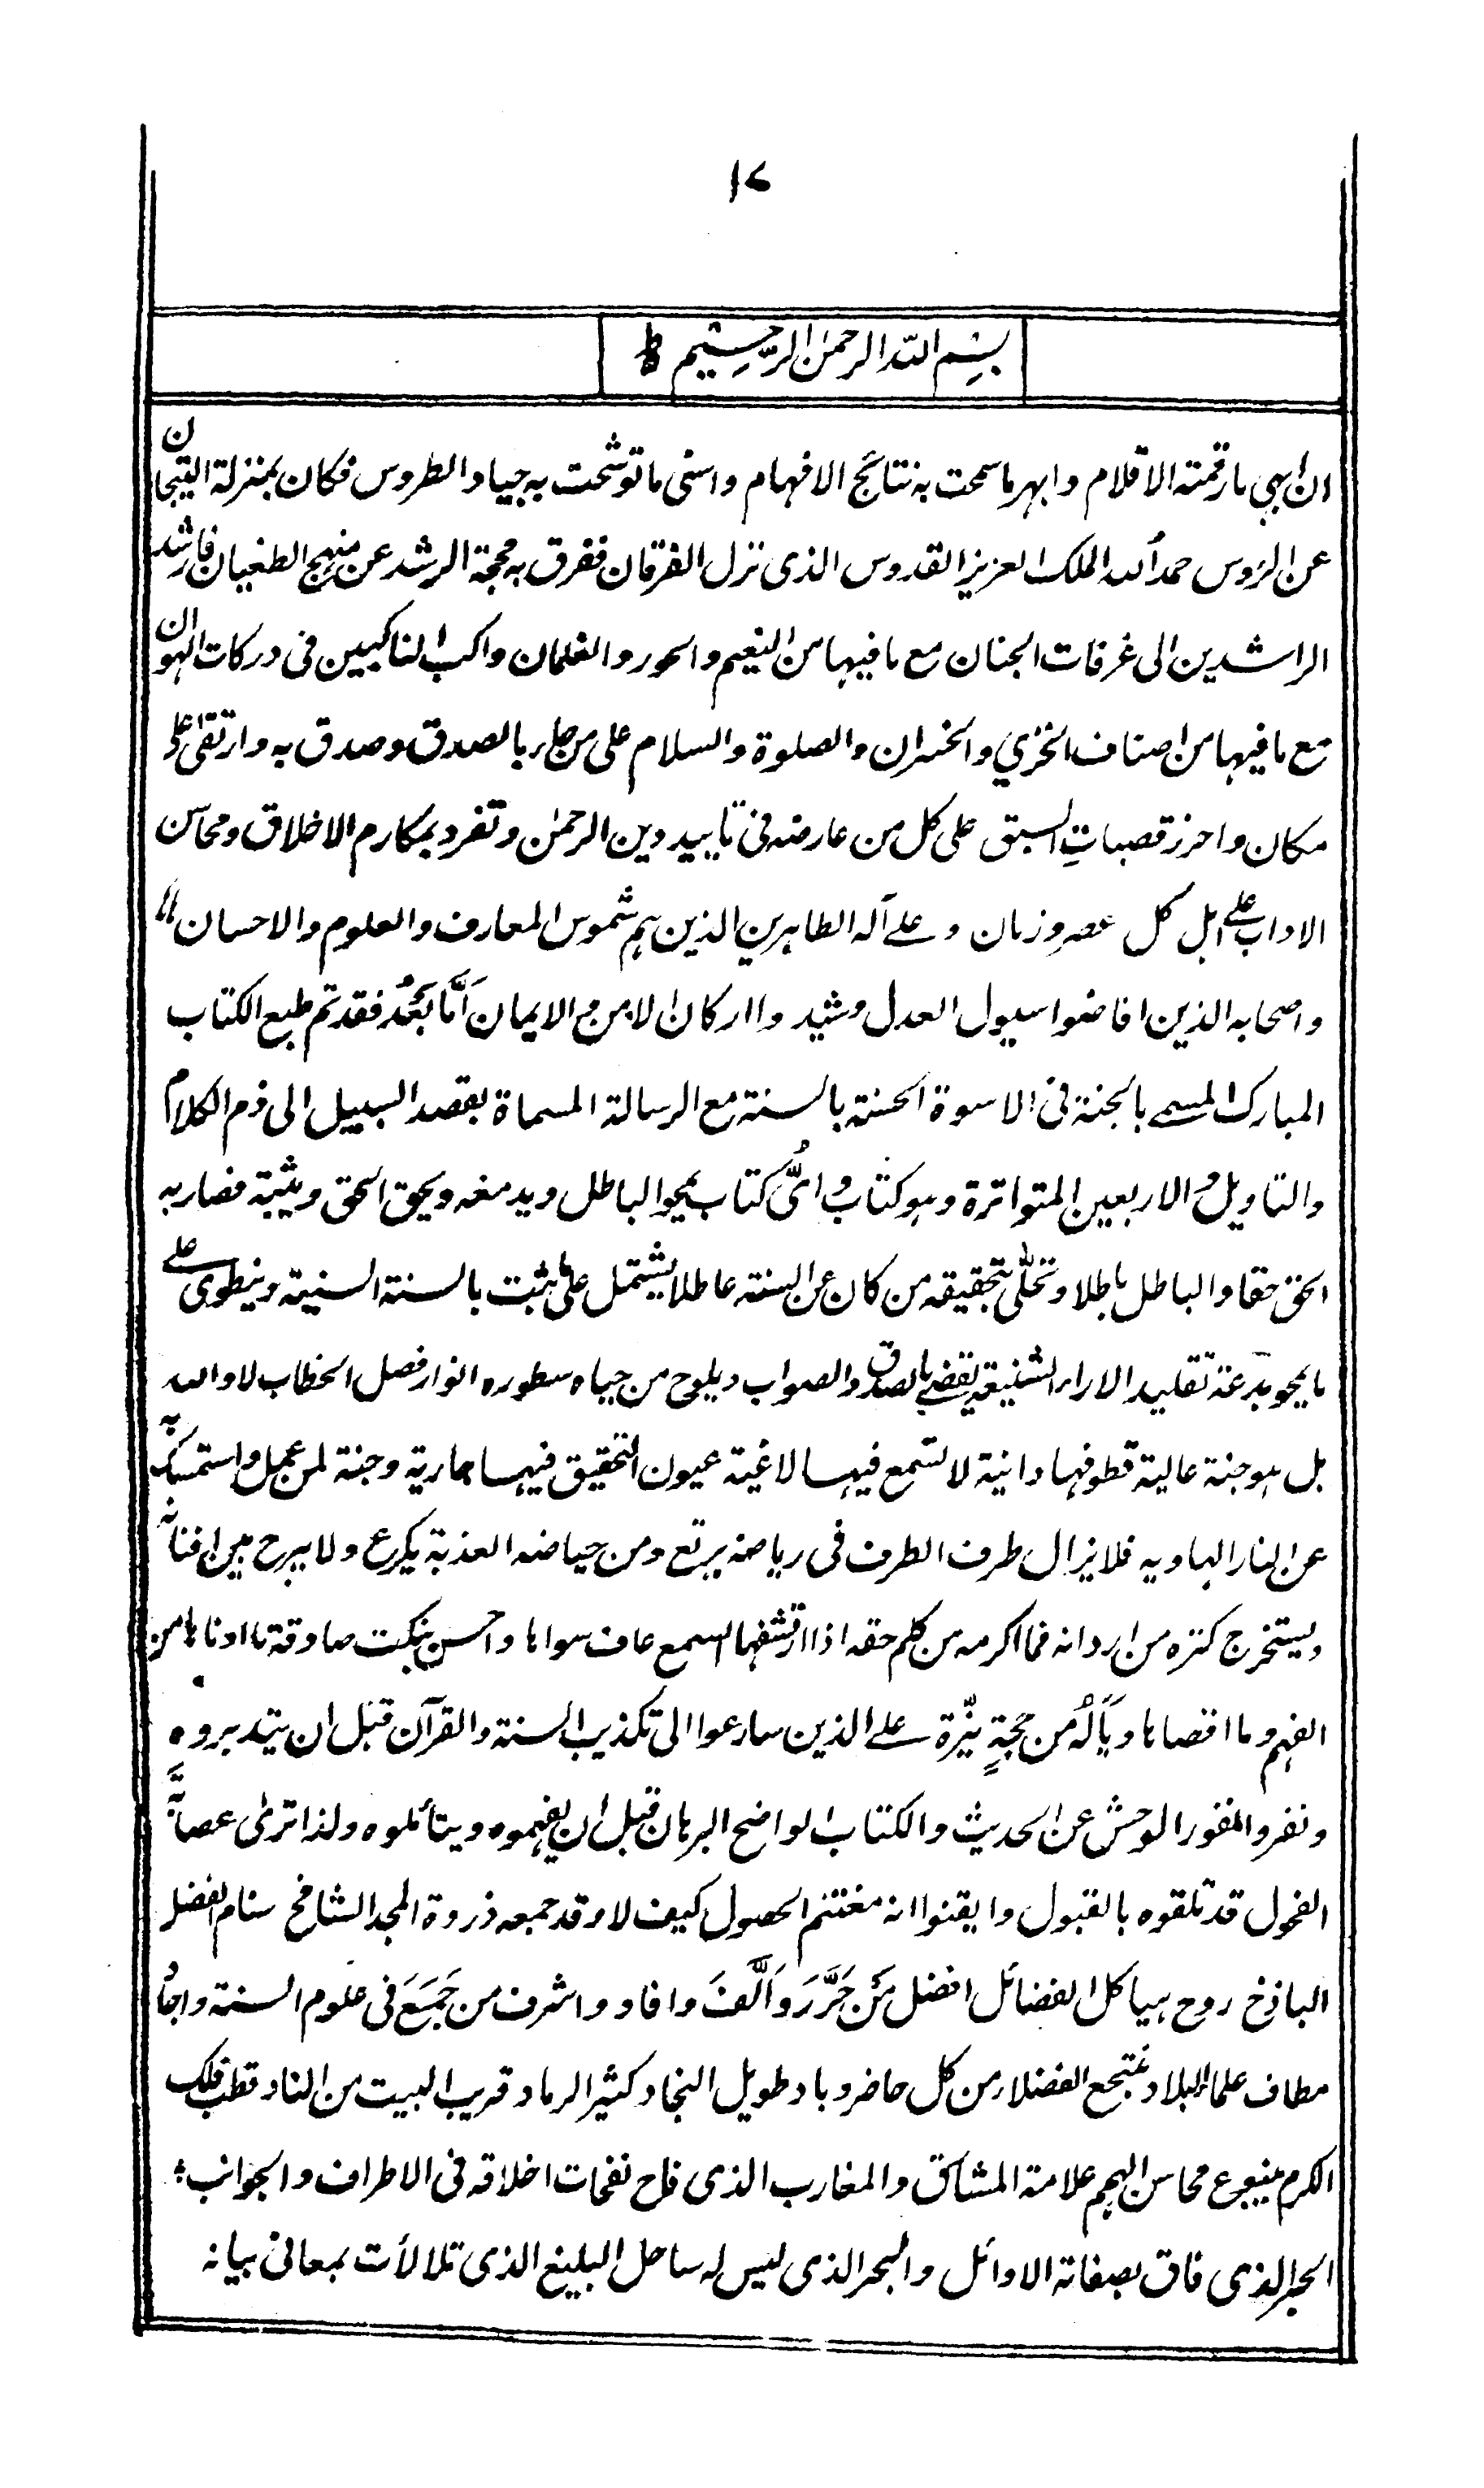 ١٧
بسم الله الرحمن الرحيم ط
ان ابهى ما رقمته الاقلام وابهر ما سمحت به نتائج الافهام واسنى ما توشحت به جياد الطروس فكان بمنزلة التيجان
عن الرؤس حمدا لله الملك العزيز القدوس الذى نزل الفرقان ففرق به محجة الرشد عن منهج الطغيان فارشد
الراشدين الى غرفات الجنان مع ما فيها من النعيم والحور والغلمان واكب الناكبين فى دركات الهوان
مع ما فيها من اصناف الخزي والخسران والصلوة والسلام على من جاء بالصدق وصدق به وارتقى اعلى
مكان واحرز قصبات السبق على كل من عارضه فى تاييد دين الرحمن وتفرد بمكارم الاخلاق ومحاسن
الاداب على اهل كل عصر وزمان وعلى آله الطاهرين الذين هم شموس المعارف والعلوم والاحسان
واصحابه الذين افاضوا سيول العدل وشيدوا اركان الامن والايمان اَمَّا بَعْدُ فقد تم طبع الكتاب
المبارك المسمى بالجنة فى الاسوة الحسنة بالسنة مع الرسالة المسماة بقصد السبيل الى ذم الكلام
والتاويل والاربعين المتواترة وهو كتاب واىُّ كتاب يمحو الباطل ويدمغه ويحق الحق ويثبته فصار به
الحق حقا والباطل باطلا وتحلّى بتحقيقه من كان عن السنة عاطلا يشتمل على ما ثبت بالسنة السنية وينطوى على
ما يمحو بدعة تقليد الاراء الشنيعة يقضى بالصدق والصواب ويلوح من جباه سطوره انوار فصل الخطاب لا والله
بل هو جنة عالية قطوفها دانية لا تسمع فيها لاغية عيون التحقيق فيها جارية وجنة لمن عمل واستمسك به
عن النار الهاويه فلا يزال طرف الطرف فى رياضه يرتع ومن حياضه العذبة يكرع ولا يبرح بين افنانه
ويستخرج كنزه من اردانه فما اكرمه من كلم حقه اذا ارتشفها السمع عاف سواها واحسن بنكت صادقة ما ادناها من
الفهم وما اقصاها ويَالَهُ من حجةٍ نيّرة على الذين سارعوا الى تكذيب السنة والقرآن قبل ان يتدبروه
ونفروا نفور الوحش عن الحديث والكتاب الواضح البرهان قبل ان يفهموه ويتأملوه ولذا ترى عصابة
الفحول قد تلقوه بالقبول وايقنوا انه مغتنم الحصول كيف لا وقد جمعه ذروة المجد الشامخ سنام الفضل
الباذخ روح هياكل الفضائل افضل مَن حَرَّرَ وَاَلَّفَ وافاد واشرف من جَمَعَ فى علوم السنة واجاد
مطاف علماء البلاد منتجع الفضلاء من كل حاضر وباد طويل النجاد كثير الرماد قريب البيت من الناد قطب فلك
الكرم ينبوع محاسن الهمم علامة المشارق والمغارب الذى فاح نفحات اخلاقه فى الاطراف والجوانب
الحبر الذى فاق بصفاته الاوائل والبحر الذى ليس له ساحل البليغ الذى تلالأت بمعانى بيانه